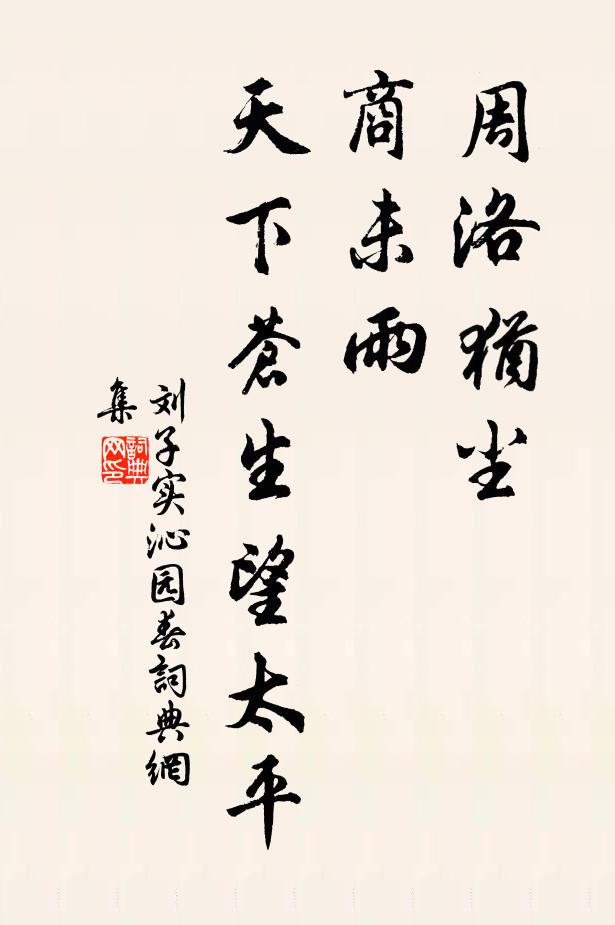 周洛猶尘
商未雨
天下蒼生望太平
刘子实沁园春詞典網
集
詞典网印